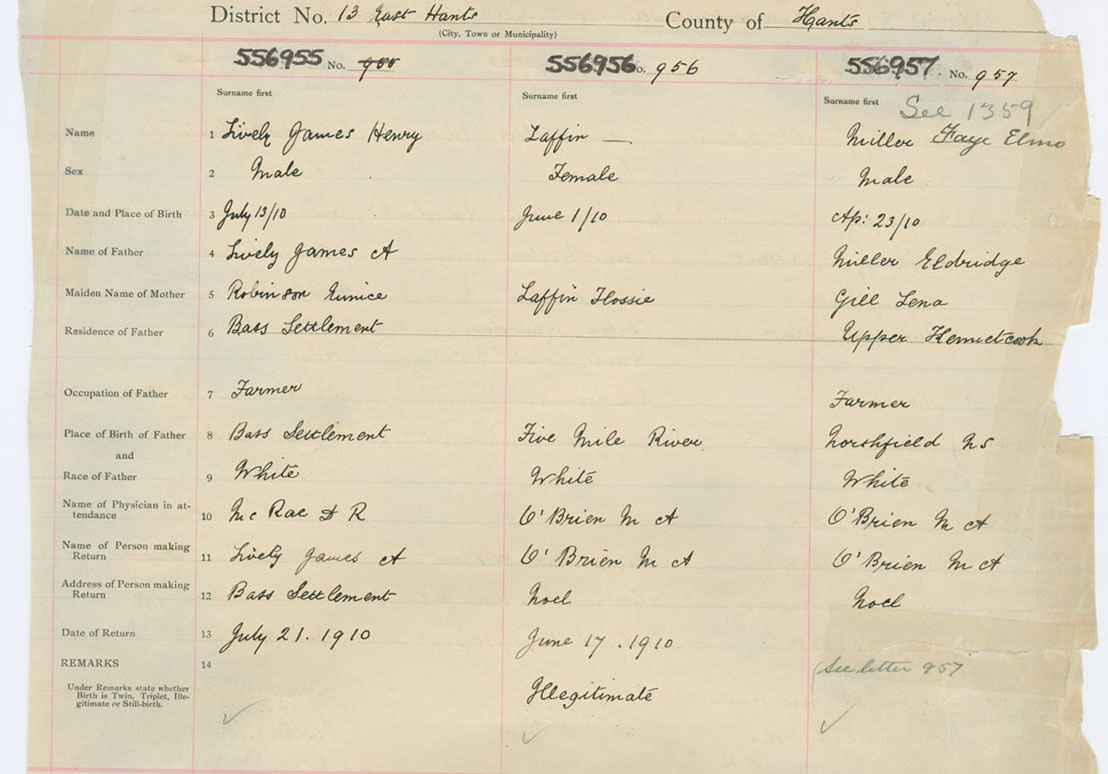 District No. 13 East Hants County of Hants
(City, Town or Municipality)
556955 No. 955 556956 No. 956 556957 No. 957
Surname first Surname first Surname first See 1359
Name 1 Lively James Henry Laffin — Miller Faye Elmo
Sex 2 Male Female Male
Date and Place of Birth 3 July 13/10 June 1/10 Ap: 23/10
Name of Father 4 Lively James A Miller Eldridge
Maiden Name of Mother 5 Robinson Eunice Laffin Flossie Gill Lena
Residence of Father 6 Bass Settlement Upper Kennetcook
Occupation of Father 7 Farmer Farmer
Place of Birth of Father 8 Bass Settlement Five Mile River Northfield NS
and
Race of Father 9 White White White
Name of Physician in at-
tendance 10 McRae D R O'Brien M A O'Brien M A
Name of Person making
Return 11 Lively James A O'Brien M A O'Brien M A
Address of Person making
Return 12 Bass Settlement Noel Noel
Date of Return 13 July 21. 1910 June 17. 1910
REMARKS 14 See letter 957
Under Remarks state whether
Birth is Twin, Triplet, Ille-
gitimate or Still-birth. Illegitimate